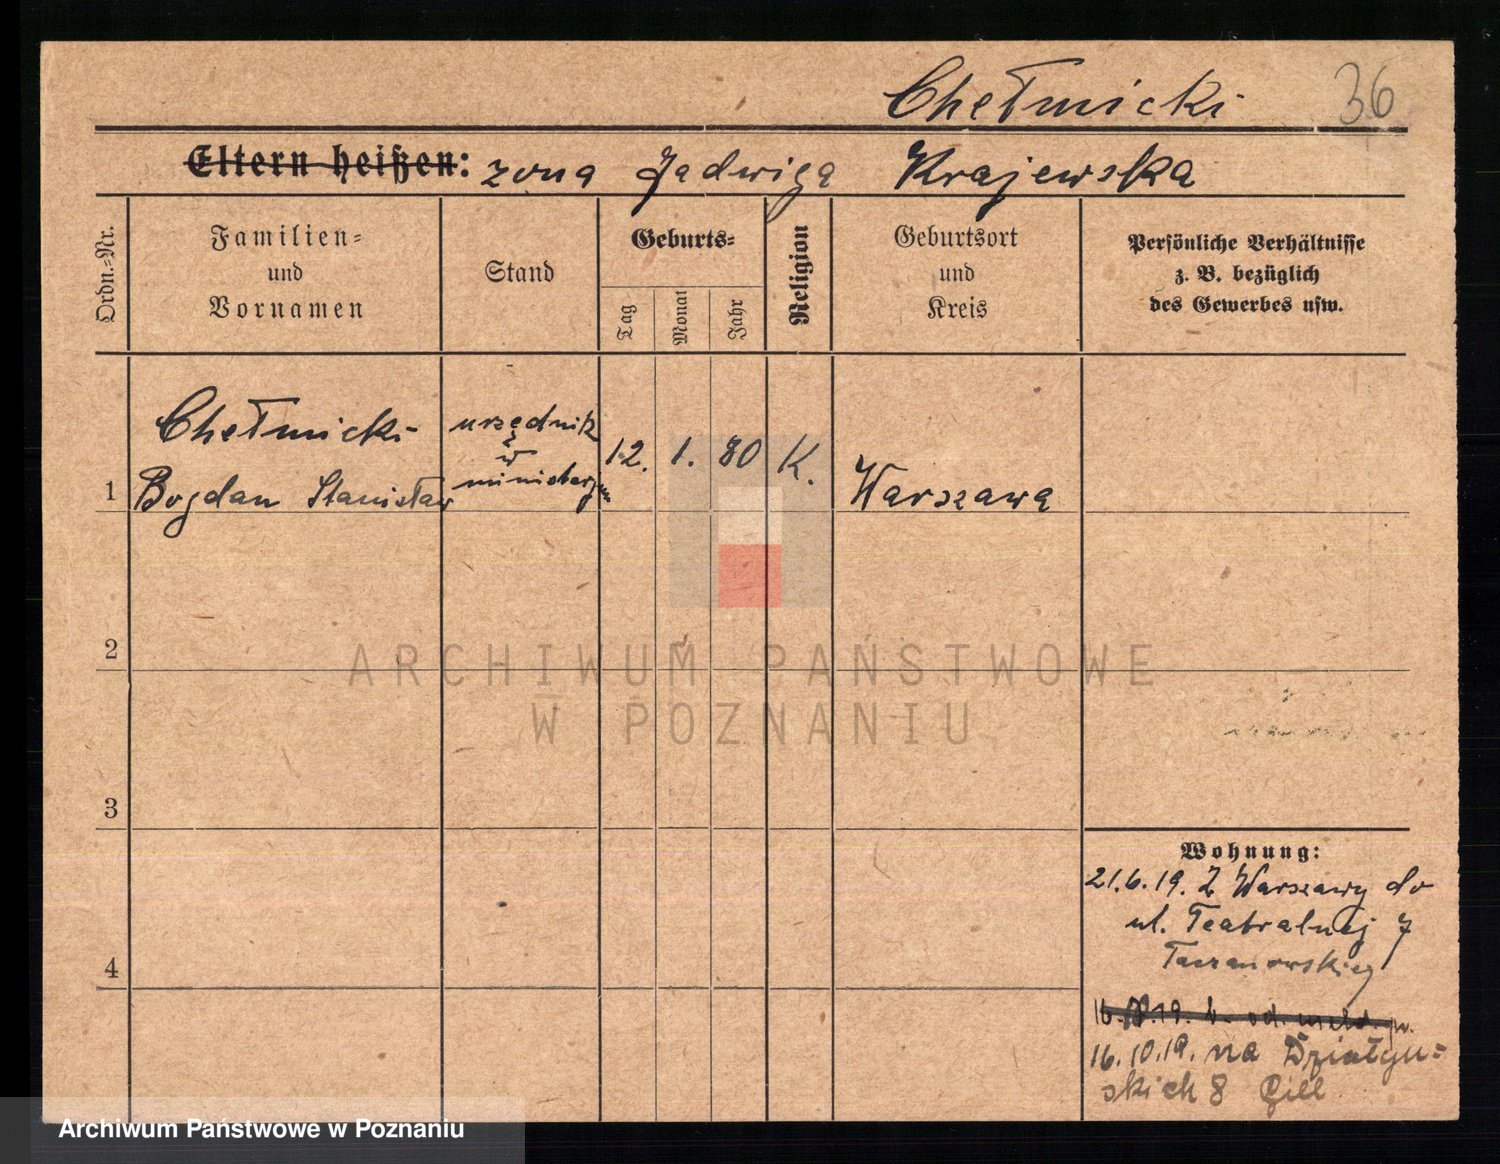 Chełmicki 36
Eltern heißen: zona Jadwiga Krajewska
Ordn.-Nr.
Familien-
und
Vornamen
Stand
Geburts-
Tag
Monat
Jahr
Religion
Geburtsort
und
Kreis
Persönliche Verhältnisse
z. B. bezüglich
des Gewerbes usw.
Chełmicki
1 Bogdan Stanisław
urzędnik
w
ministerjum
12. 1. 80 K.
Warszawa
2
3
4
Wohnung:
21.6.19. Z Warszawy do
ul. Teatralnej 7
16.10.19. na Działyń=
skich 8
ARCHIWUM PAŃSTWOWE
W POZNANIU
Archiwum Państwowe w Poznaniu